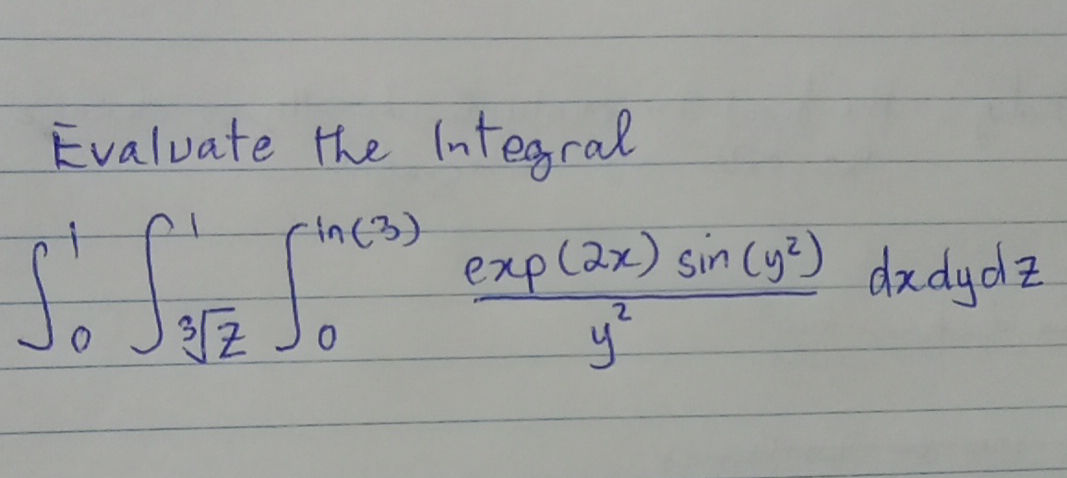 Evaluate the Integral
∫₀¹ ∫_{∛z}^{1} ∫₀^{ln(3)} \frac{exp(2x) sin(y²)}{y²} dxdydz